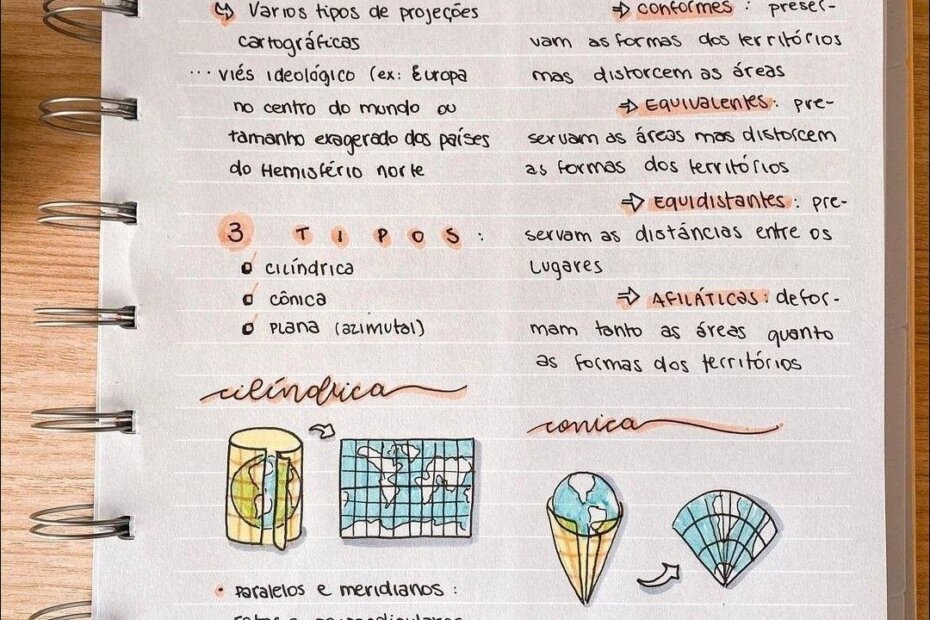 ↳ Vários tipos de projeções
cartográficas
··· viés ideológico (ex: Europa
no centro do mundo ou
tamanho exagerado dos países
do Hemisfério norte
3 TIPOS:
cilíndrica
cônica
plana (azimutal)
cilíndrica
• paralelos e meridianos:
retos e perpendiculares
⇒ conformes: preser-
vam as formas dos territórios
mas distorcem as áreas
⇒ Equivalentes: pre-
servam as áreas mas distorcem
as formas dos territórios
⇒ Equidistantes: pre-
servam as distâncias entre os
lugares
⇒ AFILÁTICAS: defor-
mam tanto as áreas quanto
as formas dos territórios
conica